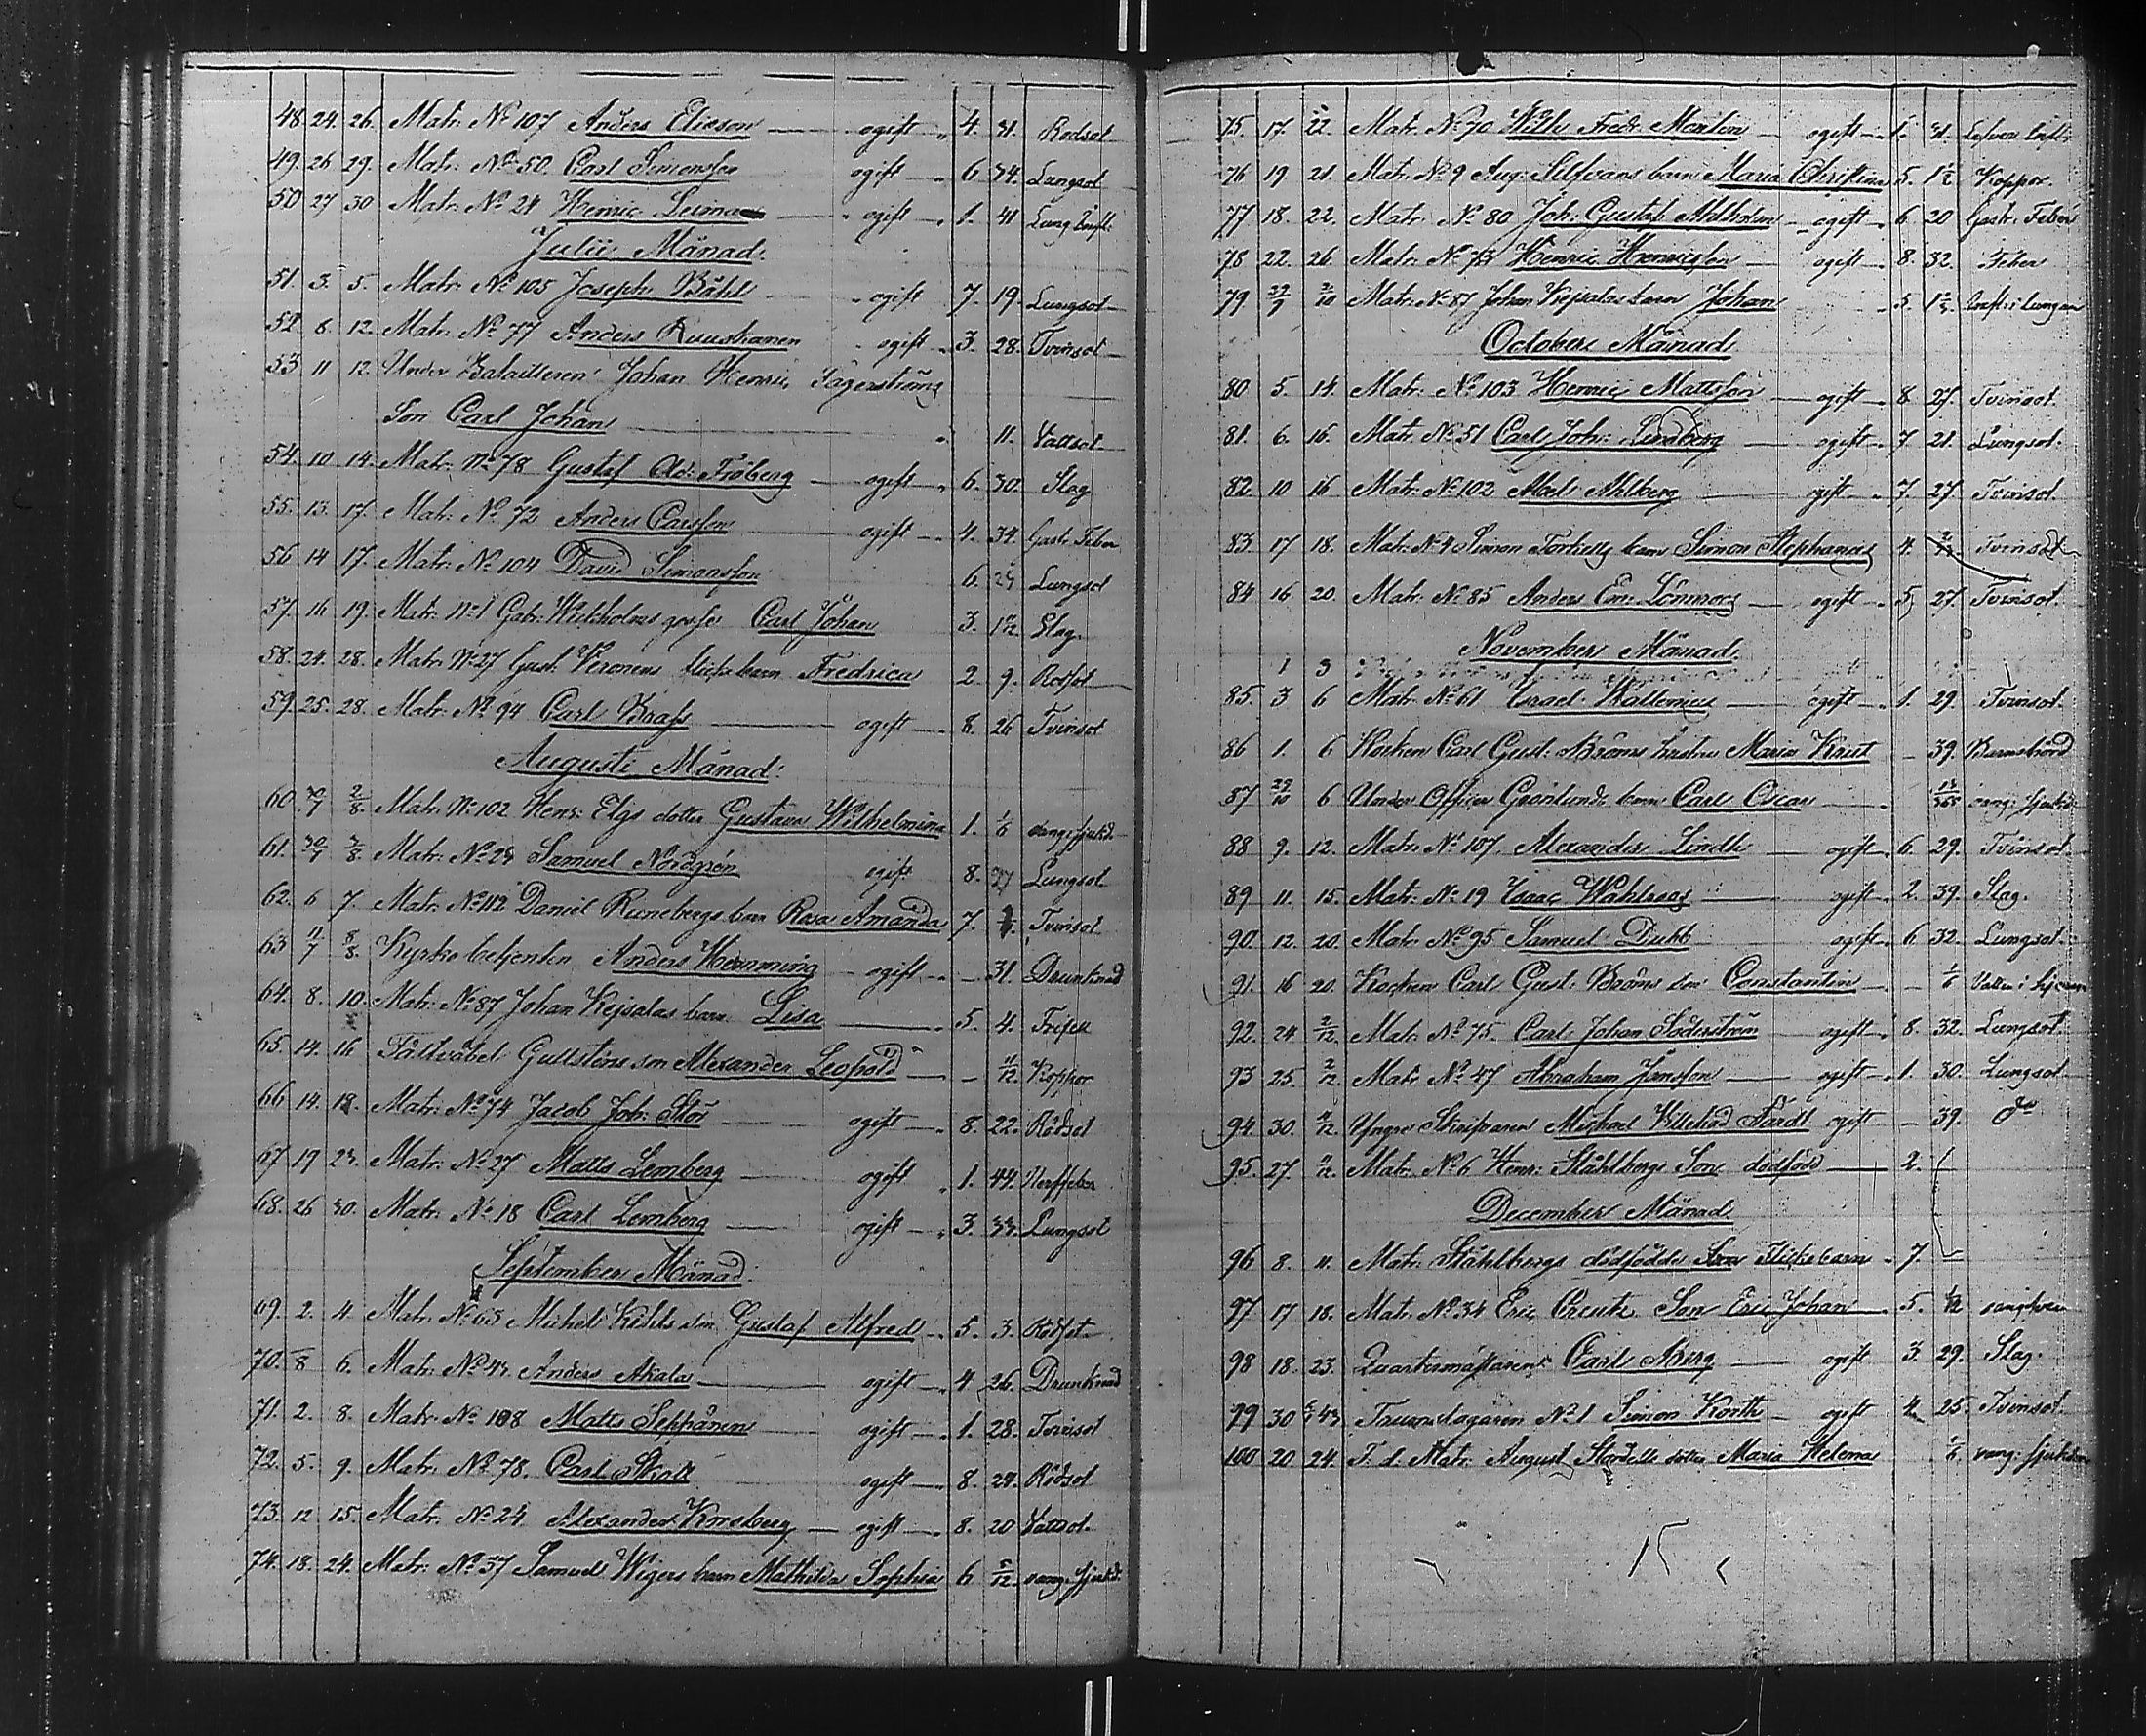 48. 24. 26. Matr. No 107 Anders Elieson — ogift „ 4. 31. Rödsot
49. 26 29. Matr. No 50. Carl Simonsson ogift „ 6 34. Lungsot
50 27 30 Matr. No 21 Henric — ogift „ 1. 41 Lung Infl:
Julii Månad.
51. 3. 5. Matr. No 105 Joseph Båhl „ ogift 7. 19. Lungsot
52 8. 12. Matr. No 77 Anders Kuushanen ogift „ 3. 28. Tvinsot
53 11 12. Under Batailleren Johan Henric Fagerströms
Son Carl Johan — „ 11. Vattsot
54. 10 14. Matr. No 78 Gustaf Ad: Fröberg — ogift „ 6. 30. Slag
55. 13. 17. Matr. No 72 Anders Carlsson ogift „ 4. 34. Gastr. Feber
56 14 17. Matr. No 104 David Simonsson 6. 23 Lungsot
57. 16 19. Matr. No 1 Gabr. Wickholms gosse Carl Johan 3. Slag.
58. 24. 28. Matr. No 27 Gust. Veronens flickebarn Fredrica 2 9. Rödsot
59. 25. 28. Matr. No 94 Carl Brass — ogift „ 8. 26 Tvinsot
Augusti Månad:
60. 30/7 2/8. Matr. No 102 Henr. Elgs dotter Gustava Wilhelmina 1. 1/6 oangif. sjukd.
61. 30/7 3/8. Matr. No 23 Samuel Nordgrén ogift 8. 27 Lungsot
62. 6 7. Matr. No 112 Daniel Runebergs barn Rosa Amanda 7. Tvinsot
63 11/7 8/8. Kyrko betjenten Anders Hemming — ogift „ — 31. Drunknad
64. 8. 10. Matr. No 87 Johan Kejsalas barn Lisa — 5. 4. Frisel
65. 14. 16 Fältväbel Gullsténs son Alexander Leopold — — 11/12. Koppor
66 14. 18. Matr. No 74 Jacob Joh: Stor ogift „ 8. 22. Rödsot
67 19 23. Matr. No 27 Matts Lemberg — ogift „ 1. 44. Nerffeber
68. 26 30. Matr. No 18 Carl Lemberg — ogift „ 3. 33. Lungsot
September Månad.
69. 2. 4. Matr. No 63 Michels son Gustaf Alfred 5. 3. Rödsot
70. 8 6. Matr. No 43. Anders Akala — ogift „ 4 26. Drunknad
71. 2. 8. Matr. No 108 Matts Seppänen ogift „ 1. 28. Tvinsot
72. 5. 9. Matr. No 78. Carl Skott ogift „ 8. 24. Rödsot
73. 12 15. Matr. No 24. Alexander Kronberg — ogift „ 8. 20 Vattsot
74. 18. 24. Matr. No 57 Samuel Wigers barn Mathilda Sophia 6 5/12. oang. sjukd.
75 17. 22. Matr. No 70 Wilh. Fredr. — ogift „ 31. Lefver Infl:
76 19 21. Matr. No 9 Aug: Silfvans barn Maria Christina 5. 1 1/2 Koppor.
77 18. 22. Matr. No 80 Joh: Gustaf Ahlholm — ogift „ 6 20 Gastr. Feber
78 22. 26. Matr. No 73 Henric Henricsson — ogift „ 8. 32. Feber
79 29/9 3/10 Matr. No 87 Johan Kejsalas barn Johan „ 5. Infl: i Lungan
October Månad.
80 5. 14. Matr. No 103 Henric Mattsson — ogift „ 8 27. Tvinsot.
81. 6. 16. Matr. No 51 Carl Joh: Lindberg — ogift „ 7 21. Lungsot.
82 10 16 Matr. No 102 Abel Ahlberg — ogift „ 7. 27. Tvinsot
83. 17 18. Matr. No 4 Simon Torkells barn Simon Stephanus 4. Tvinsot
84 16 20. Matr. No 85 Anders Em: Lönnroos — ogift „ 5 27. Tvinsot.
November Månad.
1 3
85. 3 6 Matr. No 61 Israel Wallenius — ogift „ 1. 29. Tvinsot.
86 1. 6 Kocken Carl Gust. Bröms hustru Maria Krut — 39. Barnsbörd
87 29/10 6 Under Officer Grönlunds barn Carl Oscar — 13/365 oang. sjukd.
88 9. 12. Matr. No 107. Alexander Lindh — ogift „ 6 29. Tvinsot
89 11. 15. Matr. No 19 Isaac Wahlroos — ogift „ 2. 39. Slag.
90. 12. 20. Matr. No 95 Samuel Dubb ogift „ 6 32. Lungsot.
91. 16 20. Kocken Carl Gust. Bröms son Constantin — — 1/6 Vatten i hjernan
92. 24 2/12. Matr. No 75. Carl Johan Söderström ogift „ 8. 32. Lungsot.
93 25. 2/12. Matr. No 47 Abraham Jansson — ogift „ 1. 30. Lungsot
94. 30. 4/12. Yngre Skrifvaren Michael Färdt ogift — 39. do
95. 27. /12. Matr. No 6 Henr. Ståhlbergs Son dödfödd — 2.
December Månad.
96 8. 11. Matr. Ståhlbergs dödfödde Son Flickebarn „ 7. —
97 17 18. Matr. No 34 Eric Creutz Son Eric Johan 5.
98 18. 23. Quartermästaren Carl Berg — ogift 3. 29. Slag.
99 30 Trumslagaren No 1 Simon Korth — ogift 4. 25. Tvinsot.
100 20 24. F. d. Matr. August dotter Maria Helena 1/6. oang. sjukdom
15